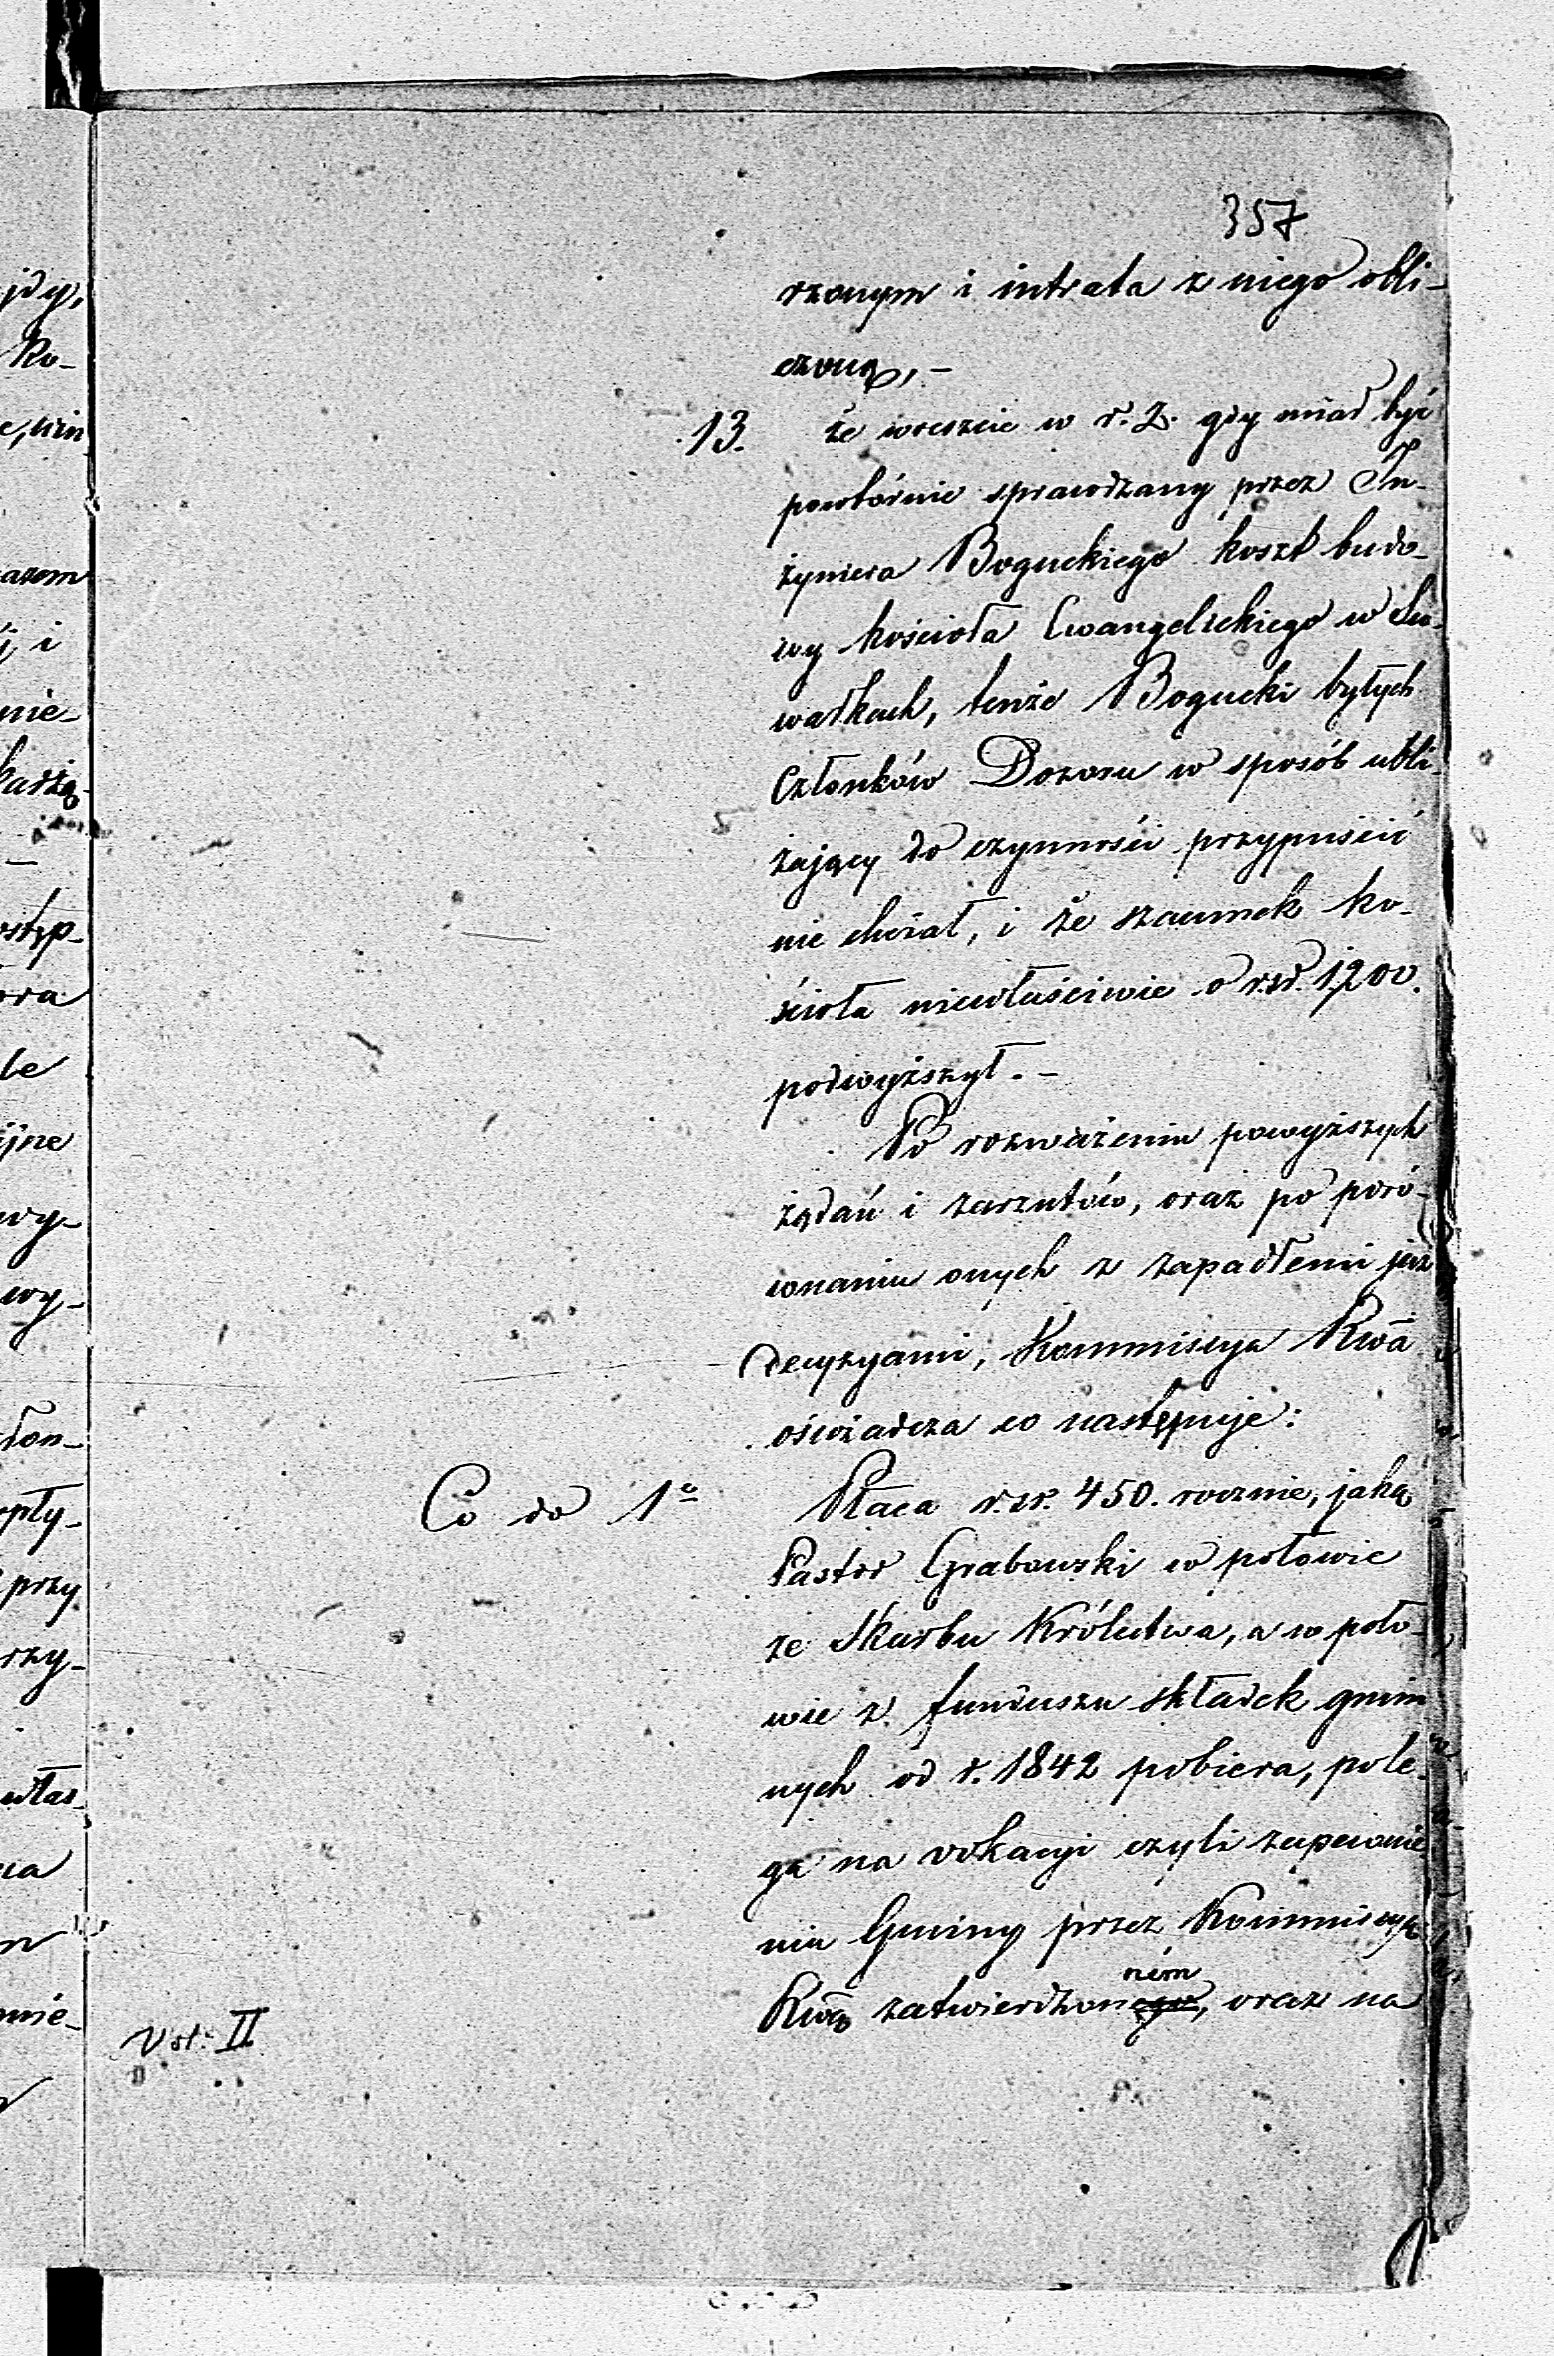 357
rzonym i intrata z niego obli-
czoną, -
13. że wreszcie w r. z. gdy miał być
powtórnie sprawdzany przez In-
żyniera Boguckiego koszt budo-
wy kościoła Ewangelickiego w Su-
wałkach, tenże Bogucki byłych
Członków Dozoru w sposób ubli-
żający do czynności przypuścić
nie chciał, i że szacunek ko-
ścioła niewłaściwie o r.sr. 1,200.
podwyższył. -
Po rozważeniu powyższych
żądań i zarzutów, oraz po poró-
wnaniu onych z zapadłemi już
decyzyami, Kommissya Rwa
oświadcza co następuje:
Co do 1o Płaca r.sr. 450. rocznie, jaką
Pastor Grabowski w połowie
ze Skarbu Królestwa, a w poło-
wie z funduszu składek gmin
nych od r. 1842 pobiera, pole-
ga na vokacyi czyli zapewnie
niu Gminy przez Kommissyę
ném
Rwą zatwierdzonego, oraz na
Vol: II
jdy,
ko-
azem
i, i
nie-
kadzą-
ostęp-
ora
le
wy-
wy-
łon-
pły-
przy
rzy-
właś-
na
nie-